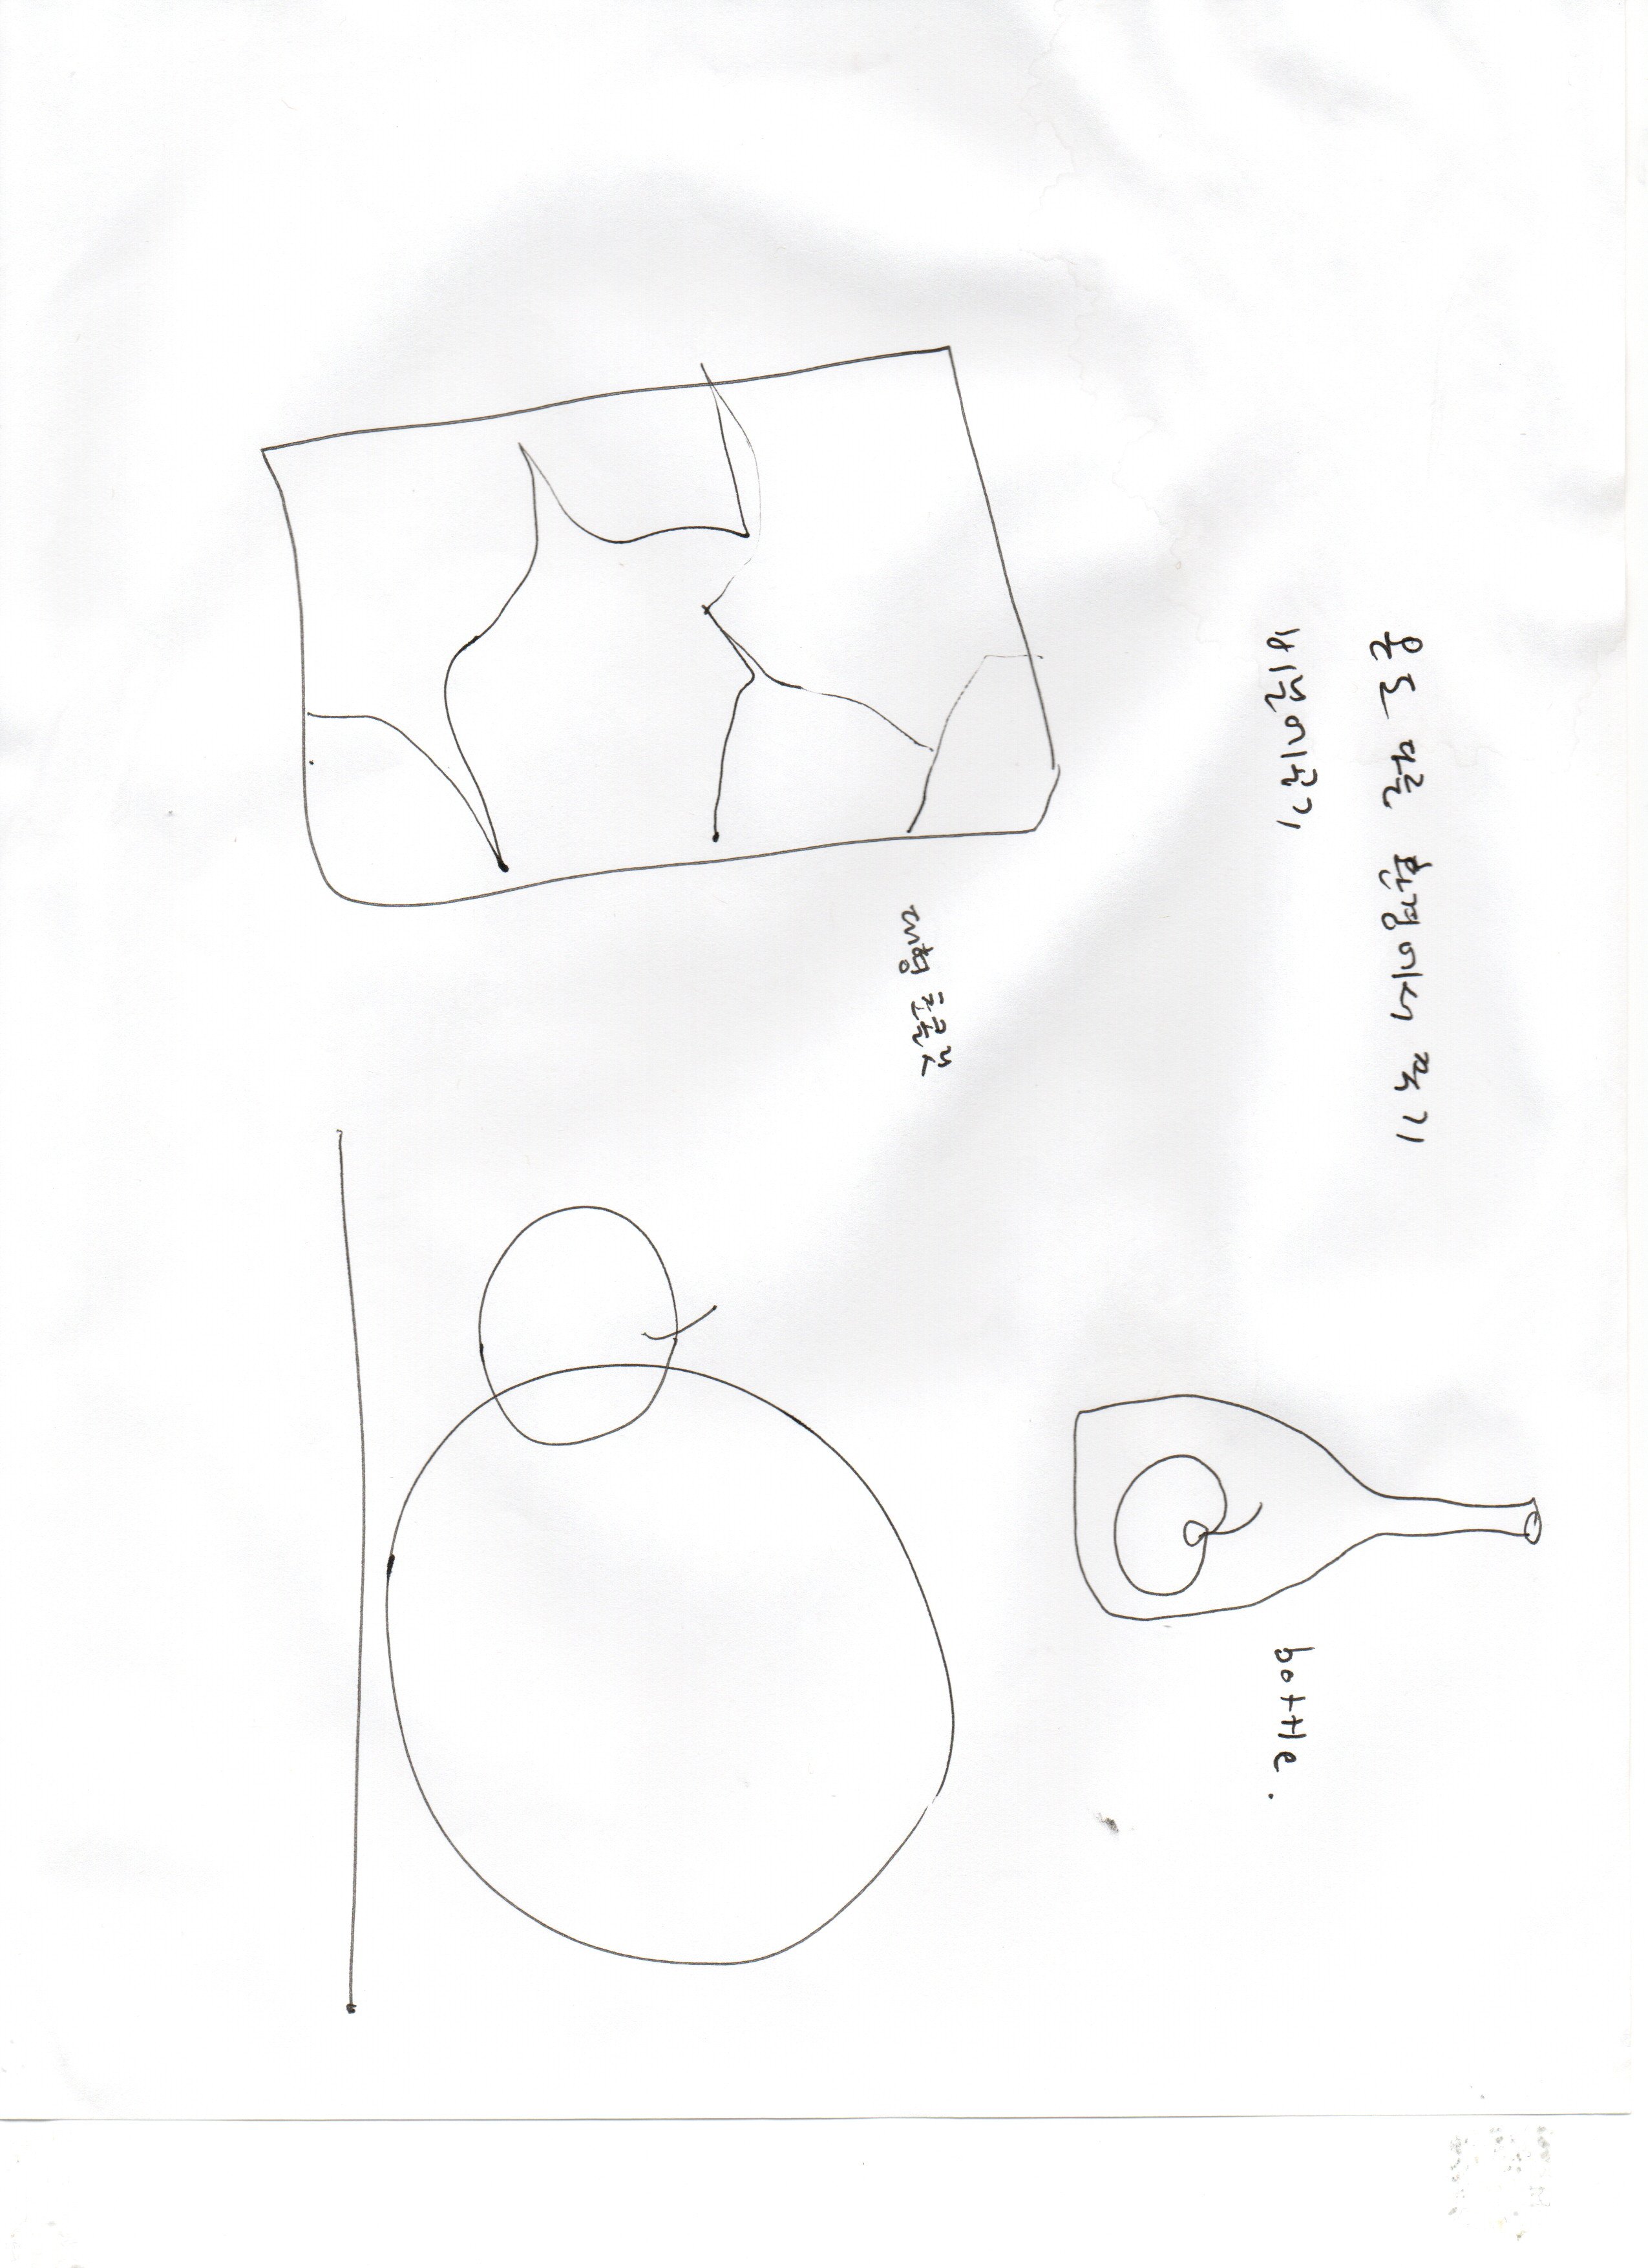 온도 다른 환경에서 찍기
비닐에공기
bottle.
대형 초콜릿